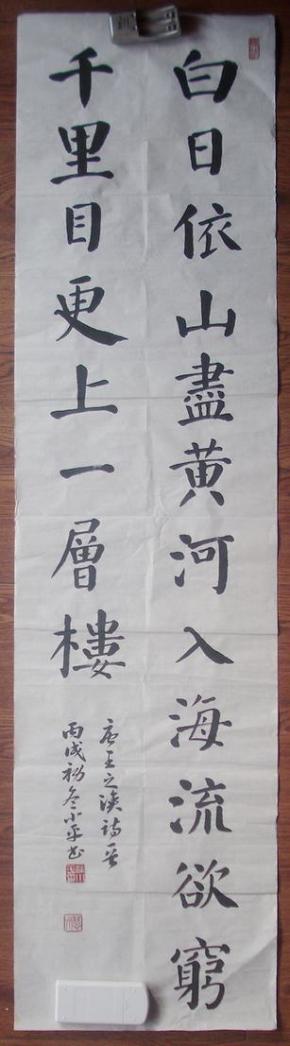 白日依山盡黄河入海流欲窮
千里目更上一層樓
唐王之涣詩一首
丙戌初冬小平书